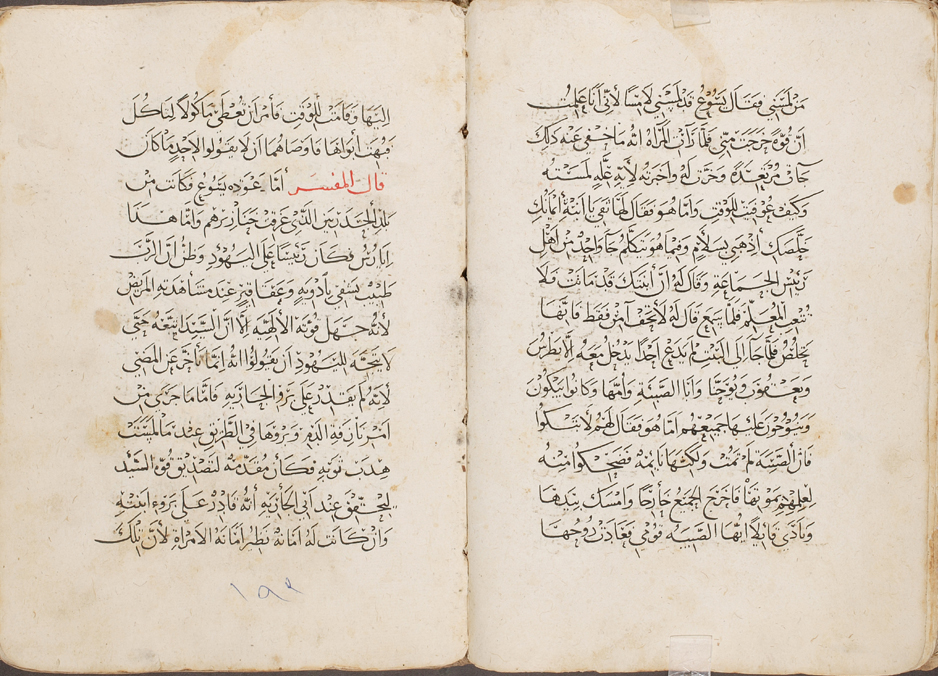 مَن لمسَني فقال يسُوع قد لمسَني لامسًا لاني أنا علِمتُ
ان قوه خرجت منّي فلمّا رَأت المرأه انّه ما خفي عنه ذلك
جات مرتعدةً وخرّت له وأخبرته لأيّة علّه لمسَته
وكيف عوفيت للوقت وامّا هو فقال لها ثقي يا ابنة ايمانك
خلّصك أذهبي بسلامٍ وفيما هو يتكلّم جآ واحدٌ من أهل
رئيس الجماعة وقال له ان أبنتك قد ماتت فلا
تتعب المعلّم فلمّا سمع قال له لا تخف آمن فقط فانّها
تخلصُ فلمّا جآ إلى البيت لم يدع احدًا يدخل معه إلّا بطرس
ويعقوب ويوحنّا وابا الصّبيّة وأمّها وكانوا يبكون
وينوحون عليها جميعهم امّا هو فقال لهم لا تبكوا
فان الصّبيّة لم تمت ولكنّها نايمه فضحكوا منه
لعلمهم بموتها فاخرج الجميع خارجًا وامسك بيدها
ونادي قايلًا ايّها الصّبيه قومي فعادت روحها
اليها وقامت للوقت فأمر ان تُعطَي ماكولًا لتاكل
فبهت أبواها فاوصاهما ان لا يقولا لاحدٍ ما كان
قال المفسّر امّا عَوده يسُوع فكانت من
بلد الجرجسيين الذين غرقت خنازيرهم وامّا هذا
يايرُس فكان رئيسًا على اليهود وظنّ انّ الربّ
طبيب يشفي بأدويةٍ وعقاقيرٍ عند مشاهدته المريض
لأنّه جهل قوّته الألهيّه إلّا انّ السّيد اتبعه حتّي
لا يتجه لليهود أن يقولوا انّه انّما تأخّر عن المضي
لأنّه لم يقدر على بروّ الجاريه فامّا ما جرَى من
امر نازفة الدّم وبروها في الطّريق عند ما لمست
هدب ثوبه فكان مقدّمه لتصديق قوّه السّيّد
ليتحقق عند ابي الجاريه أنّه قادر على بروء ابنته
وان كانت له امانه نظير امانه الامرأة لأن تلك
١٩٢